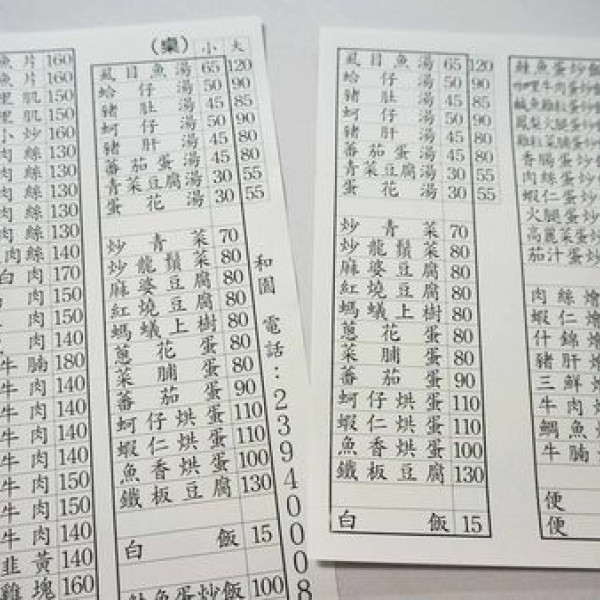 魚片 160
里肌 150
里肌 150
小炒 160
肉絲 130
肉絲 130
肉絲 130
肉絲 130
肉絲 130
肉絲 140
白肉 170
肉 150
肉 150
肉 150
牛腩 180
牛肉 140
牛肉 140
牛肉 140
牛肉 140
牛肉 150
牛肉 150
牛肉 140
韭黃 140
雞塊 160
(桌) 小 大
虱目魚湯 65 120
蛤仔湯 50 90
豬肚湯 45 85
蚵仔湯 50 90
豬肝湯 45 80
蕃茄蛋湯 45 80
青菜豆腐湯 30 55
蛋花湯 30 55
炒青菜 70
炒龍鬚菜 80
麻婆豆腐 80
紅燒豆腐 80
螞蟻上樹 80
蔥花蛋 80
菜脯蛋 80
蕃茄蛋 90
蚵仔烘蛋 110
蝦仁烘蛋 110
魚香烘蛋 100
鐵板豆腐 130
白飯 15
鮭魚蛋炒飯 100
和園 電話:23940008
虱目魚湯 65 120
蛤仔湯 50 90
豬肚湯 45 85
蚵仔湯 50 90
豬肝湯 45 80
蕃茄蛋湯 45 80
青菜豆腐湯 30 55
蛋花湯 30 55
炒青菜 70
炒龍鬚菜 80
麻婆豆腐 80
紅燒豆腐 80
螞蟻上樹 80
蔥花蛋 80
菜脯蛋 80
蕃茄蛋 90
蚵仔烘蛋 110
蝦仁烘蛋 110
魚香烘蛋 100
鐵板豆腐 130
白飯 15
鮭魚蛋炒飯
咖哩牛肉蛋炒飯
鹹魚雞粒蛋炒
鳳梨火腿蛋炒
雞粒菜脯蛋炒
香腸蛋炒飯
肉絲蛋炒飯
蝦仁蛋炒
火腿蛋炒
高麗菜蛋炒
茄汁蛋炒
肉絲燴
蝦仁燴
什錦燴
豬肝燴
三鮮燴
牛肉燴
鯛魚
牛腩
便
便